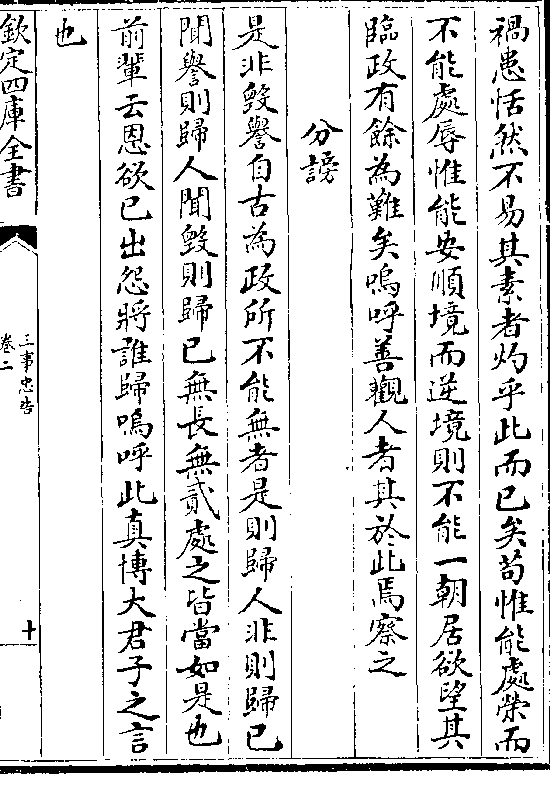 禍患恬然不易其素者灼乎此而已矣苟惟能處榮而
不能處辱惟能安順境而逆境則不能一朝居欲望其
臨政有餘為難矣嗚呼善觀人者其於此焉察之
分謗
是非毀譽自古為政所不能無者是則歸人非則歸已
聞譽則歸人聞毀則歸已無長無貳處之皆當如是也
前輩云恩欲已出怨將誰歸嗚呼此真博大君子之言
也
欽定四庫全書
三事忠告
卷二
十